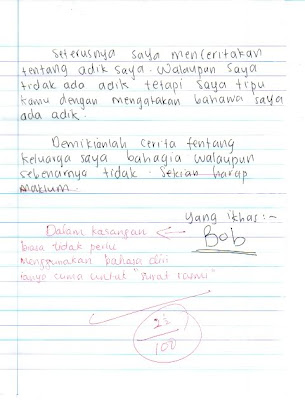 Seterusnya saya menceritakan
tentang adik saya. Walaupun saya
tidak ada adik tetapi saya tipu
kamu dengan mengatakan bahawa saya
ada adik.
Demikianlah cerita tentang
keluarga saya bahagia walaupun
sebenarnya tidak. Sekian harap
maklum.
Yang ikhlas :~
Bob
Dalam karangan
biasa tidak perlu
menggunakan bahasa diri
ianya cuma untuk "surat rasmi"
100